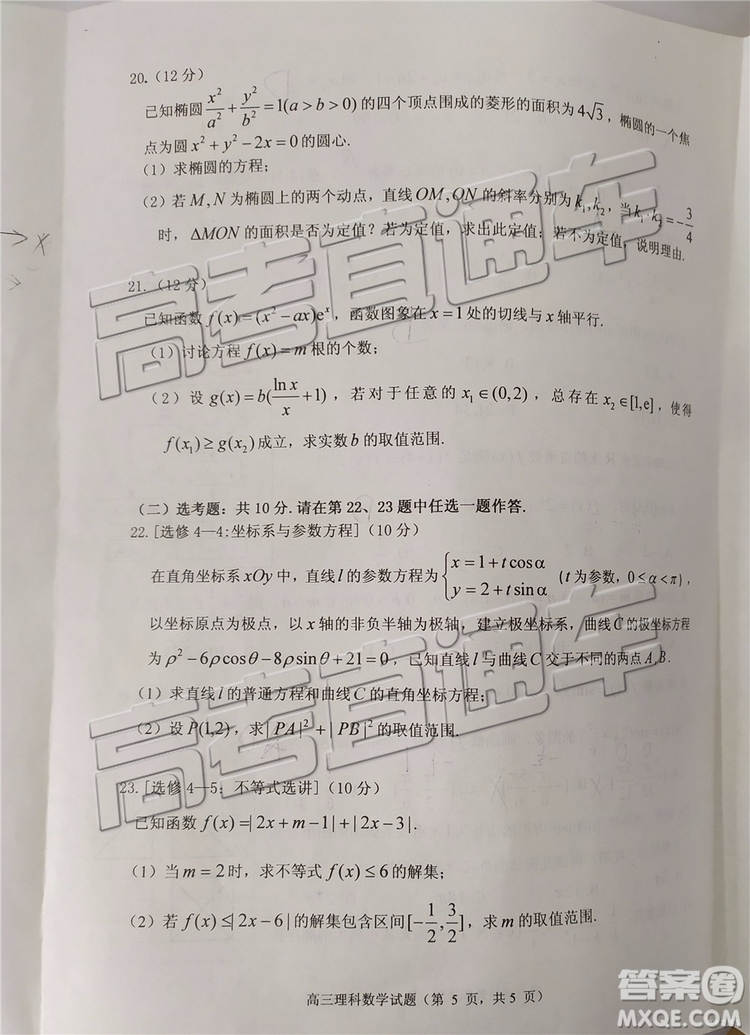 20.（12分）
已知椭圆 x²/a² + y²/b² = 1(a > b > 0) 的四个顶点围成的菱形的面积为 4√3，椭圆的一个焦
点为圆 x² + y² − 2x = 0 的圆心.
（1）求椭圆的方程；
（2）若 M, N 为椭圆上的两个动点，直线 OM, ON 的斜率分别为 k₁, k₂，当 k₁·k₂ = −3/4
时，ΔMON 的面积是否为定值？若为定值，求出此定值；若不为定值，说明理由.
21.（12分）
已知函数 f(x) = (x² − ax)eˣ，函数图象在 x = 1 处的切线与 x 轴平行.
（1）讨论方程 f(x) = m 根的个数；
（2）设 g(x) = b(ln x/x + 1)，若对于任意的 x₁ ∈ (0, 2)，总存在 x₂ ∈ [1, e]，使得
f(x₁) ≥ g(x₂) 成立，求实数 b 的取值范围.
（二）选考题：共 10 分. 请在第 22、23 题中任选一题作答.
22.[选修 4—4:坐标系与参数方程]（10 分）
在直角坐标系 xOy 中，直线 l 的参数方程为 { x = 1 + t cos α
y = 2 + t sin α （t 为参数, 0 ≤ α < π），
以坐标原点为极点，以 x 轴的非负半轴为极轴，建立极坐标系，曲线 C 的极坐标方程
为 ρ² − 6ρcosθ − 8ρsinθ + 21 = 0，已知直线 l 与曲线 C 交于不同的两点 A, B.
（1）求直线 l 的普通方程和曲线 C 的直角坐标方程；
（2）设 P(1,2)，求 |PA|² + |PB|² 的取值范围.
23.[选修 4—5：不等式选讲]（10 分）
已知函数 f(x) = |2x + m − 1| + |2x − 3|.
（1）当 m = 2 时，求不等式 f(x) ≤ 6 的解集；
（2）若 f(x) ≤ |2x − 6| 的解集包含区间 [−1/2, 3/2]，求 m 的取值范围.
高三理科数学试题（第 5 页，共 5 页）
高考直通车
高考直通车
答案圈
MXQE.COM